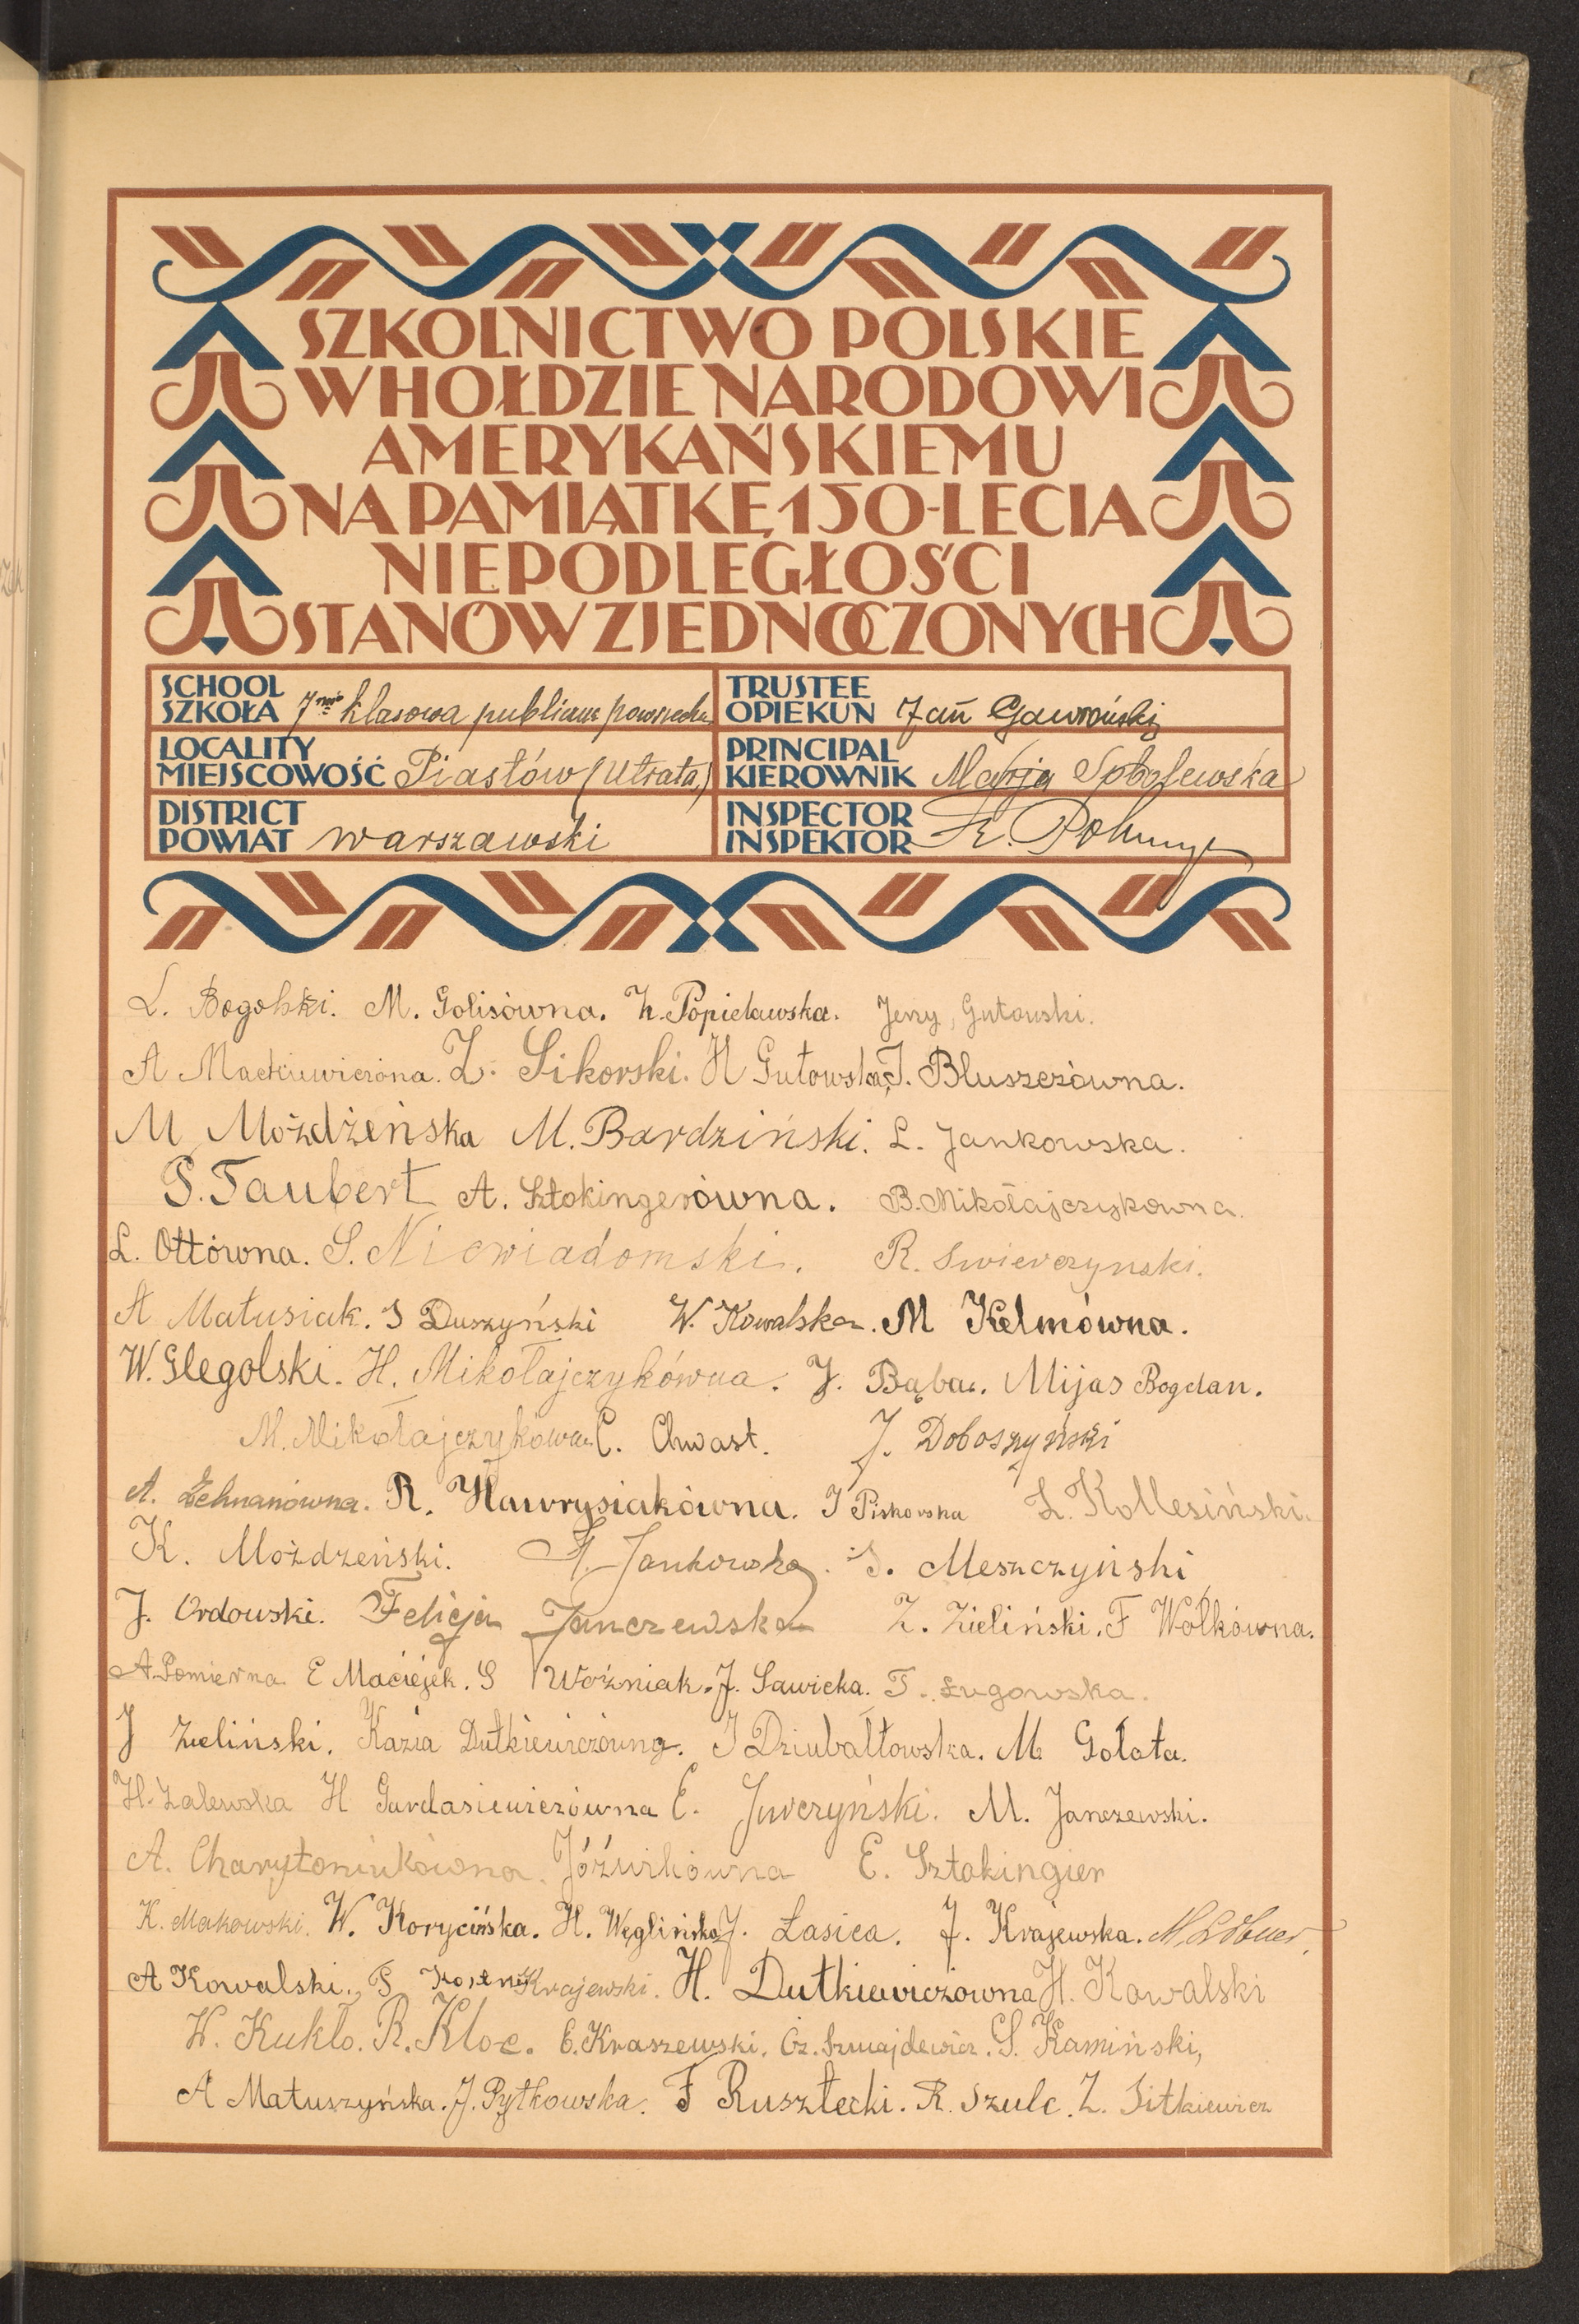 SZKOLNICTWO POLSKIE
W HOŁDZIE NARODOWI
AMERYKAŃSKIEMU
NA PAMIĄTKĘ 150-LECIA
NIEPODLEGŁOŚCI
STANÓW ZJEDNOCZONYCH
SCHOOL
SZKOŁA 7mio klasowa publiczna powszechna
TRUSTEE
OPIEKUN Jan Gawroński
LOCALITY
MIEJSCOWOŚĆ Piastów (Utrata)
PRINCIPAL
KIEROWNIK Marja Sobolewska
DISTRICT
POWIAT warszawski
INSPECTOR
INSPEKTOR
L. Bogolski. M. Golisówna. Popielawska. Jerzy, Gutowski.
A Mackiewiczóna. Z. Sikorski. H Gutowska, J. Bluszczówna.
M Możdżeńska M. Bardziński. L. Jankowska.
P. Taubert A. Sztokingerówna. B. Mikołajczykowna.
L. Ottówna. S. Niewiadomski. R. Swierczynski.
A Matusiak. S Duszyński W. Kowalska. M Kelmówna.
W. Glegolski. H. Mikołajczykówna. J. Bąba. Mijas Bogdan.
M. Mikołajczykówna C. Chwast. J. Doboszyński
A. R. Hawrysiakówna. J Piskorska L. Kollesiński.
K. Możdzeński. A. Jankowska. S. Meszczyński
J. Ordowski. Felicja Janczewska Z. Zieliński. F Wólkówna.
A. Pomierna E Maciejek. S Woźniak. J. Sawicka. T. Ługowska.
J Zieliński. Kazia Dutkiewiczówna. J Dziubałtowska. M Gołota.
H. Zalewska H Gardasiewiczówna E. Jurczyński. M. Janczewski.
A. Charytoniukówna. Jóźwikówna E. Sztokingier
K. Makowski. W. Korycińska. H. Węglińska J. Łasica. J. Krajewska.
A Kowalski. Krajewski. H. Dutkiewiczówna H. Kowalski
W. Kukło. R. Kloc. E. Kraszewski. Cz. Szmajdewicz. S. Kamiński,
A Matuszyńska. J. Pytkowska. F Rusztecki. R. Szulc. Z. Sitkiewicz